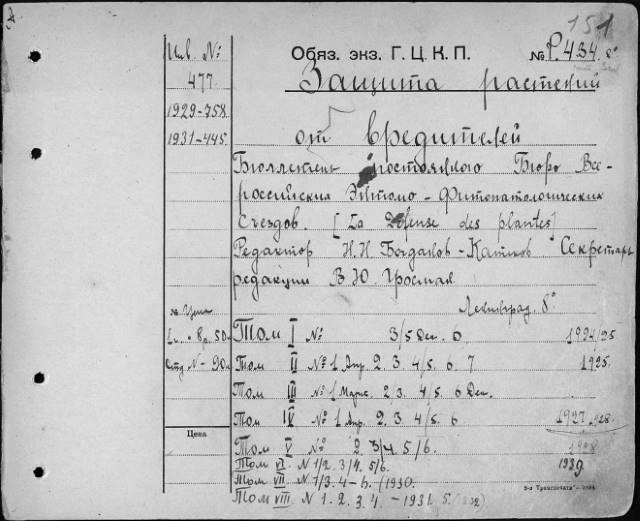 151
Инв. №
Обяз. экз. Г.Ц.К.П.
№ Р.434. 8°
477
Защита растений
1929-758
1931-445.
от вредителей
Бюллетень постоянного Бюро Все-
российских Энтомо-Фитопатологических
Съездов. [La Défense des plantes]
Редактор Н.Н. Богданов-Катьков Секретарь
редакции В.Ю. Гросман
Ленинград. 8°
Цена
8р. 50
Том I № 3/5 Дек. 6 1924/25
Отд № - 90к
Том II № 1 Апр. 2. 3. 4/5. 6. 7 1925.
Том III № 1 Март. 2/3. 4/5. 6 Дек.
Том IV № 1 Апр. 2. 3. 4/5. 6 1927-928.
Цена
Том V № 2. 3/4. 5/6. 1928
Том VI. N 1/2. 3/4. 5/6. 1939.
Том VII. N 1/3. 4-6. (1930.
Том VIII. N 1. 2. 3. 4. - 1931. 5. (1932)